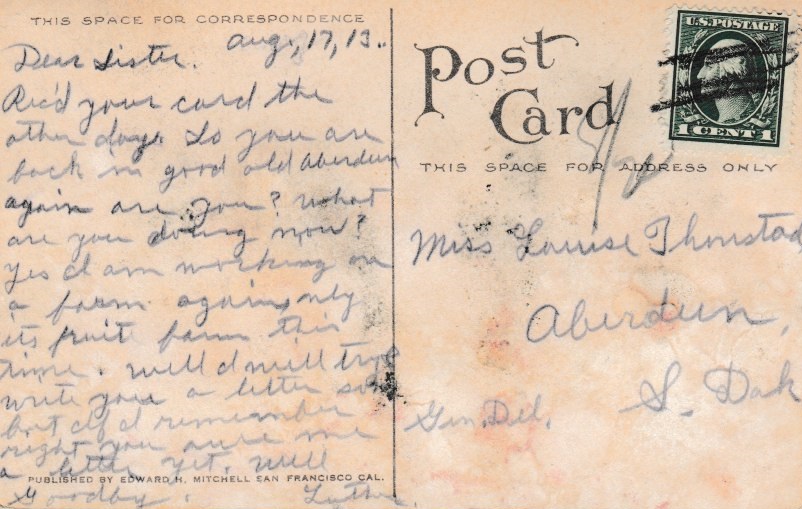 THIS SPACE FOR CORRESPONDENCE
Aug, 17, 13.
Dear Sister.
Rec'd your card the
other day. So you are
back in good old Aberdeen
again are you? What
are you doing now?
Yes I am working on
a farm again, only
its fruit farm this
time. Well I will try &
write you a letter soon
but if I remember
right you owe me
a letter yet. Well
Goodby. Luther
PUBLISHED BY EDWARD H. MITCHELL SAN FRANCISCO CAL.
Post
Card
U.S. POSTAGE
1 CENT 1
THIS SPACE FOR ADDRESS ONLY
Miss Louise Thonstad
Aberdeen,
S. Dak
Gen. Del.